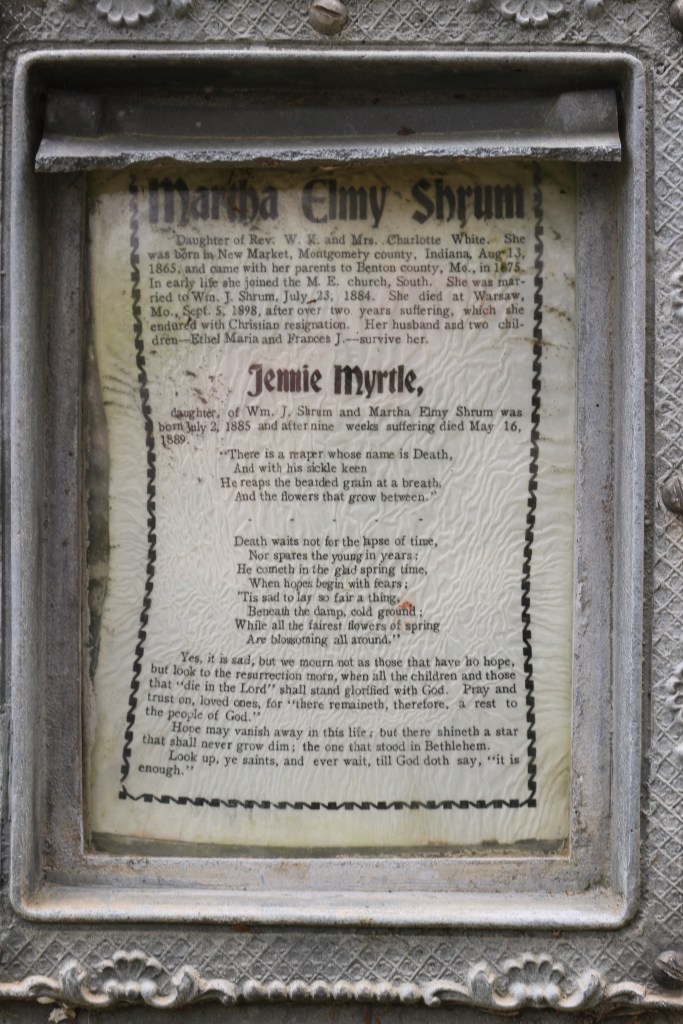 Martha Elmy Shrum
Daughter of Rev. W. K. and Mrs. Charlotte White. She
was born in New Market, Montgomery county, Indiana, Aug 13,
1865, and came with her parents to Benton county, Mo., in 1875.
In early life she joined the M. E. church, South. She was mar-
ried to Wm. J. Shrum, July 23, 1884. She died at Warsaw,
Mo., Sept. 5, 1898, after over two years suffering, which she
endured with Christian resignation. Her husband and two chil-
dren—Ethel Maria and Frances J.—survive her.
Jennie Myrtle,
daughter, of Wm. J. Shrum and Martha Elmy Shrum was
born July 2, 1885 and after nine weeks suffering died May 16,
1889.
"There is a reaper whose name is Death,
And with his sickle keen
He reaps the bearded grain at a breath,
And the flowers that grow between."
Death waits not for the lapse of time,
Nor spares the young in years;
He cometh in the glad spring time,
When hopes begin with fears;
'Tis sad to lay so fair a thing,
Beneath the damp, cold ground;
While all the fairest flowers of spring
Are blossoming all around."
Yes, it is sad, but we mourn not as those that have no hope,
but look to the resurrection morn, when all the children and those
that "die in the Lord" shall stand glorified with God. Pray and
trust on, loved ones, for "there remaineth, therefore, a rest to
the people of God."
Hope may vanish away in this life; but there shineth a star
that shall never grow dim; the one that stood in Bethlehem.
Look up, ye saints, and ever wait, till God doth say, "it is
enough."